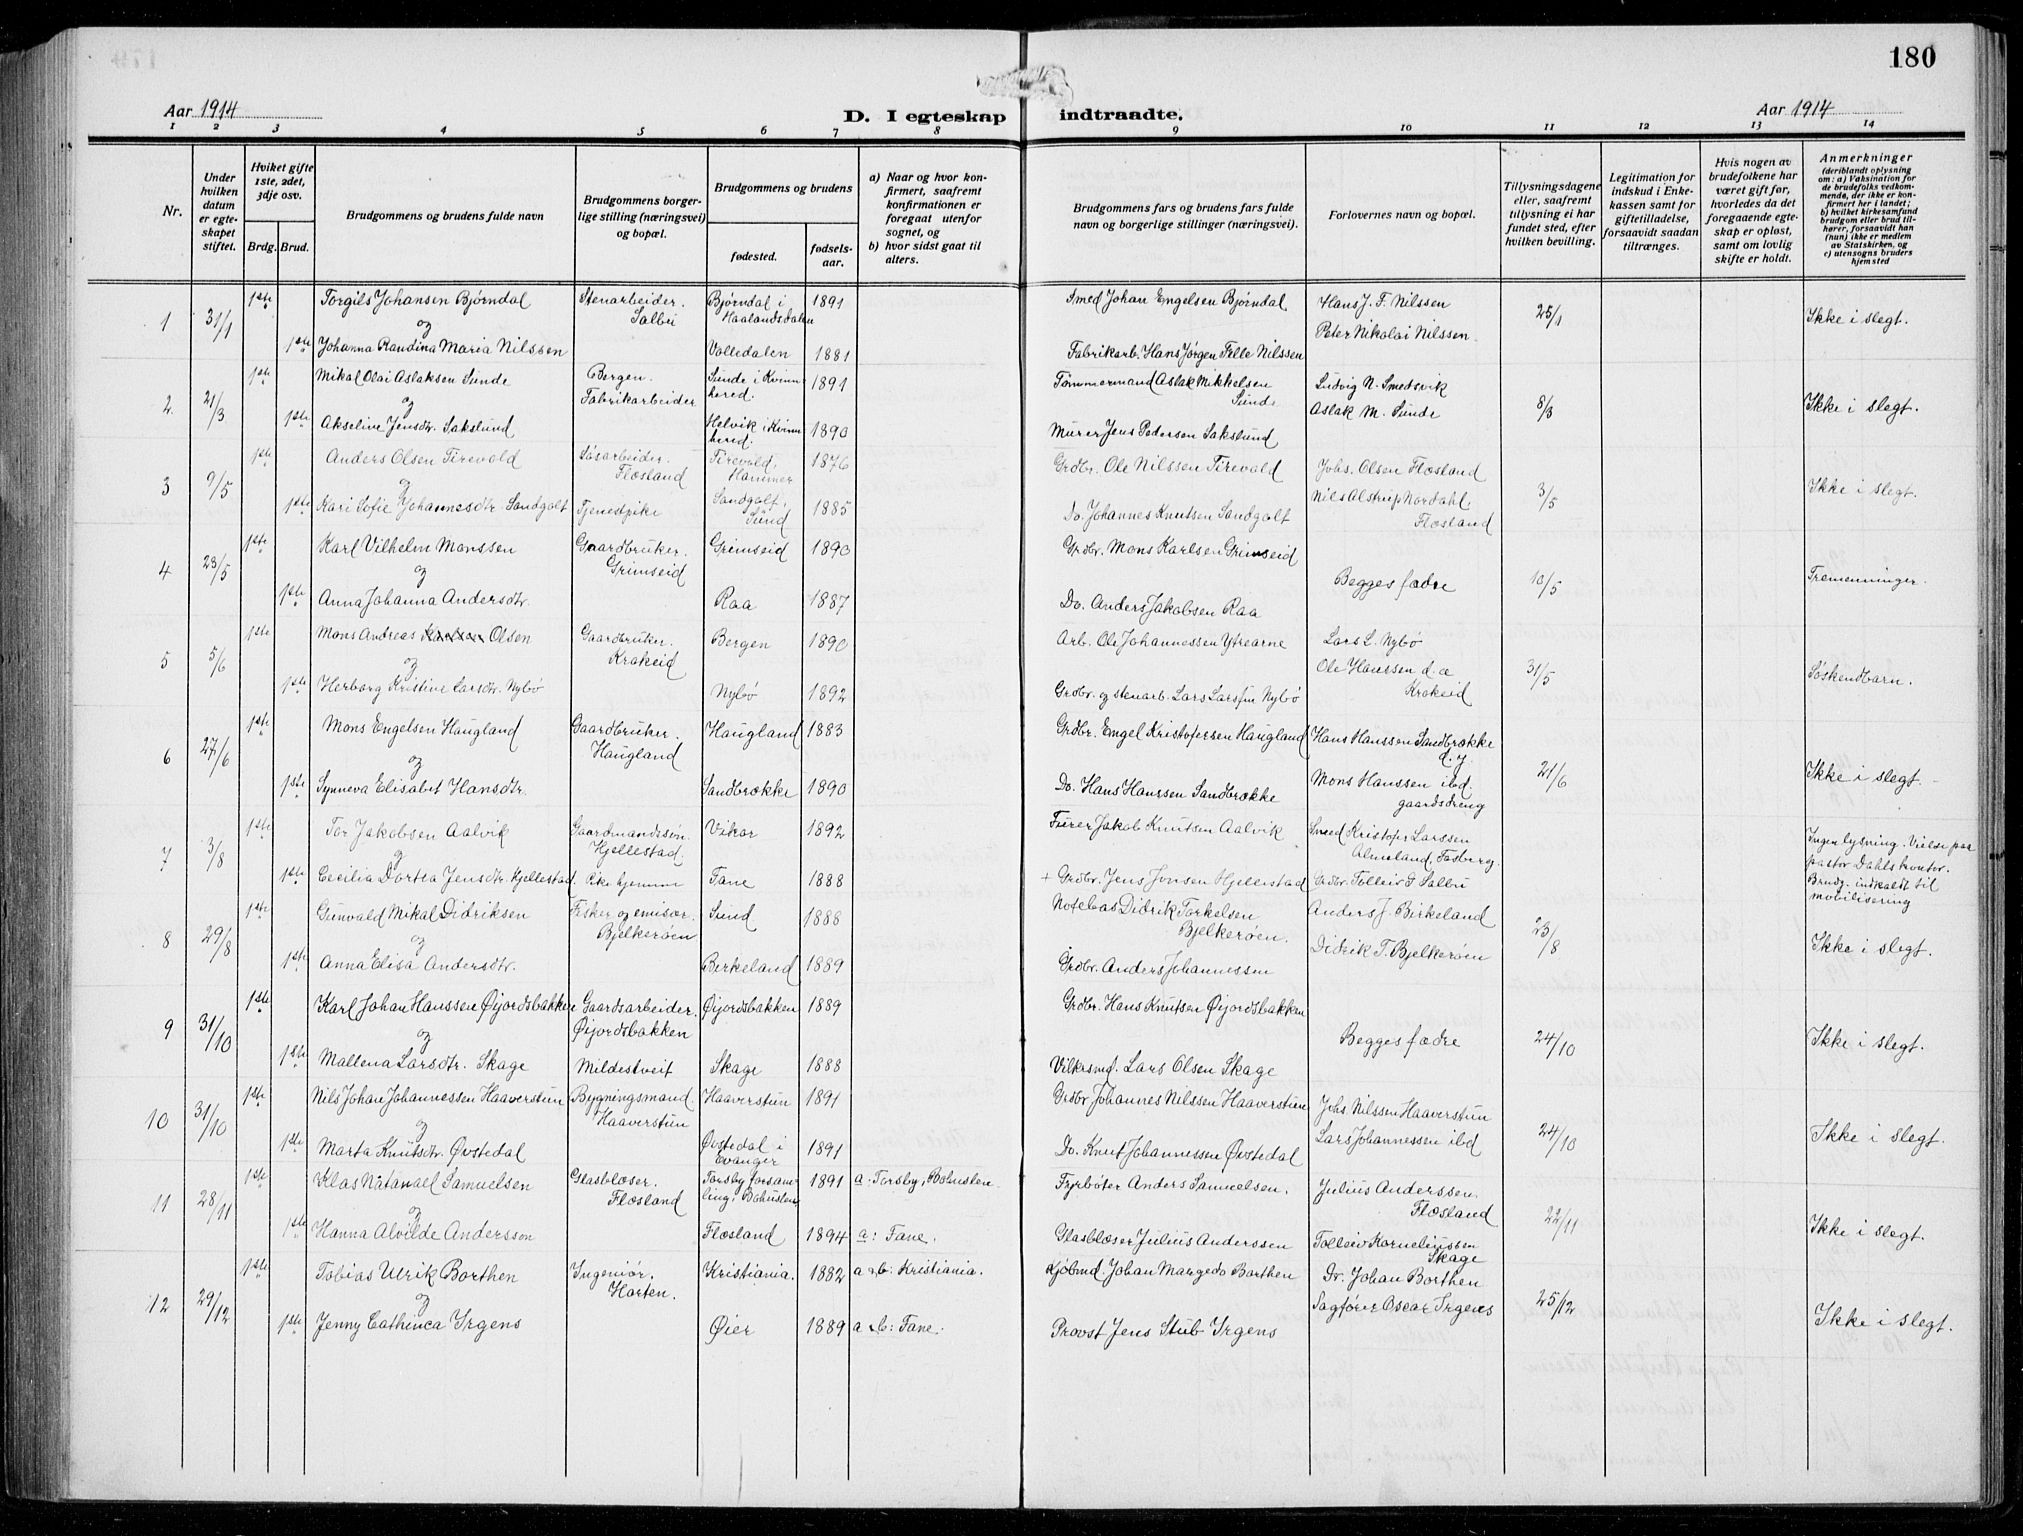 180
Aar 1914
D. I egteskap indtraadte.
Aar 1914
1 2 3 4 5 6 7 8 9 10 11 12 13 14
Nr.
Under hvilken datum er egteskapet stiftet.
Hvilket gifte 1ste, 2det, 3dje osv.
Brdg. Brud.
Brudgommens og brudens fulde navn
Brudgommens borgerlige stilling (næringsvei) og bopæl.
Brudgommens og brudens
fødested.
fødselsaar.
a) Naar og hvor konfirmert, saafremt konfirmationen er foregaat utenfor sognet, og
b) hvor sidst gaat til alters.
Brudgommens fars og brudens fars fulde navn og borgerlige stillinger (næringsvei).
Forlovernes navn og bopæl.
Tillysningsdagene eller, saafremt tillysning ei har fundet sted, efter hvilken bevilling.
Legitimation for indskud i Enkekassen samt for giftetilladelse, forsaavidt saadan tiltrænges.
Hvis nogen av brudefolkene har været gift før, hvorledes da det foregaaende egteskap er opløst, samt om lovlig skifte er holdt.
Anmerkninger (deriblandt oplysning om: a) Vaksination for de brudefolks vedkommende, der ikke er konfirmert her i landet; b) hvilket kirkesamfund brudgom eller brud tilhører, forsaavidt han (hun) ikke er medlem av Statskirken, og c) utensogns bruders hjemsted
1 31/1 1ste Torgils Johansen Bjørndal Stenarbeider. Salbu Bjørndal i Haalandsdalen 1891 Smed Johan Engelsen Bjørndal Hans J. F. Nilssen 25/1 Ikke i slegt.
og
1ste Johanna Randina Maria Nilssen Valledalen 1881 Fabrikarb. Hans Jørgen Felle Nilssen Peter Nikolai Nilssen.
2 21/3 1ste Mikal Olai Aslaksen Sunde Bergen. Fabrikarbeider Sunde i Kvinnhered. 1891 Tømmermand Aslak Mikkelsen Sunde Ludvig N. Smedsvik 8/3 Ikke i slegt.
og
1ste Akseline Jensdtr. Sakslund Helvik i Kvinnhered. 1890 Murer Jens Pedersen Sakslund Aslak M. Sunde
3 9/5 1ste Anders Olsen Tirevold Søsarbeider. Flæsland Tirevold, Hammer 1876 Grdbr. Ole Nilssen Tirevald Johs. Olsen Flæsland 3/5 Ikke i slegt.
og
1ste Kari Sofie Johannesdtr. Sandgolt Tjenestpike Sandgolt, Sund 1885 Do. Johannes Knutsen Sandgolt Nils Alstrup Nordahl Flæsland
4 23/5 1ste Karl Vilhelm Monssen Gaardbruker. Grimseid Grimseid 1890 Grdbr. Mons Karlsen Grimseid Begges fædre 10/5 Tremenninger.
og
1ste Anna Johanna Andersdtr. Raa 1887 Do. Anders Jakobsen Raa
5 5/6 1ste Mons Andreas Karlsen Olsen Gaardbruker. Krokeid Bergen 1890 Arb. Ole Johannessen Ytrearne Lars L. Nybø 31/5 Søskendbarn.
og
1ste Herborg Kristine Larsdtr. Nybø Nybø 1892 Grdbr. og stenarb. Lars Larssen Nybø Ole Hanssen d. æ Krokeid
6 27/6 1ste Mons Engelsen Haugland Gaardbruker. Haugland Haugland 1883 Grdbr. Engel Kristofersen Haugland Hans Hanssen Sandbrække d. y. 21/6 Ikke i slegt.
og
1ste Synneva Elisabet Hansdtr. Sandbrække 1890 Do. Hans Hanssen Sandbrække Mons Hanssen ibd. gaardsdreng
7 3/8 1ste Tor Jakobsen Aalvik Gaardmandssøn. Hjellestad Vikør 1892 Furer Jakob Knutsen Aalvik Smed Kristofer Larssen Almeland, Fosberg. Ingen lysning. Vielse paa pastor Dahls kontor. Brudg. indkaldt til mobilisering
og
1ste Cecilia Dortea Jensdtr. Hjellestad. Pike hjemme Fane 1888 + Grdbr. Jens Jonsen Hjellestad Grdbr. Tolleiv G Salbu
8 29/8 1ste Gunvald Mikal Didriksen Fisker og emisær. Bjelkerøen Sund 1888 Notebas Didrik Torkelsen Bjelkerøen. Anders J. Birkeland 23/8 Ikke i slegt.
og
1ste Anna Elisa Andersdtr. Birkeland 1889 Grdbr. Anders Johannessen Didrik T. Bjelkerøen
9 31/10 1ste Karl Johan Hanssen Øijordsbakken Gaardsarbeider. Øijordsbakken Øijordsbakken 1889 Grdbr. Hans Knutsen Øijordsbakken Begges fædre 24/10 Ikke i slegt.
og
1ste Mallena Larsdtr. Skage Mildestveit Skage 1888 Vilkesmd. Lars Olsen Skage
10 31/10 1ste Nils Johan Johannessen Haaverstun Bygningsmand. Haaverstun Haaverstun 1891 Grdbr Johannes Nilssen Haaverstun Johs. Nilssen Haaverstun 24/10 Ikke i slegt.
og
1ste Marta Knutsdtr. Øvstedal Øvstedal i Evanger 1891 Do. Knut Johannessen Øvstedal Lars Johannessen ibd
11 28/11 1ste Klas Natanael Samuelsen Glasblæser. Flæsland Torsby forsamling, Bohuslen 1891 a: Torsby, Bohuslen. Fyrbøter Anders Samuelsen. Julius Anderssen. Flæsland 22/11 Ikke i slegt.
og
1ste Hanna Alvilde Andersson Flæsland 1894 a: Fane. Glasblæser Julius Anderssen Tolleiv Korneliussen Skage
12 29/12 1ste Tobias Ulrik Borthen Ingeniør. Horten. Kristiania. 1882 a & b: Kristiania. Kjøbmd. Johan Margedo Borthen Dr. Johan Borthen 25/12 Ikke i slegt.
og
1ste Jenny Cathinca Irgens Øier 1889 a & b: Fane. Provst Jens Stub Irgens Sagfører Oscar Irgens